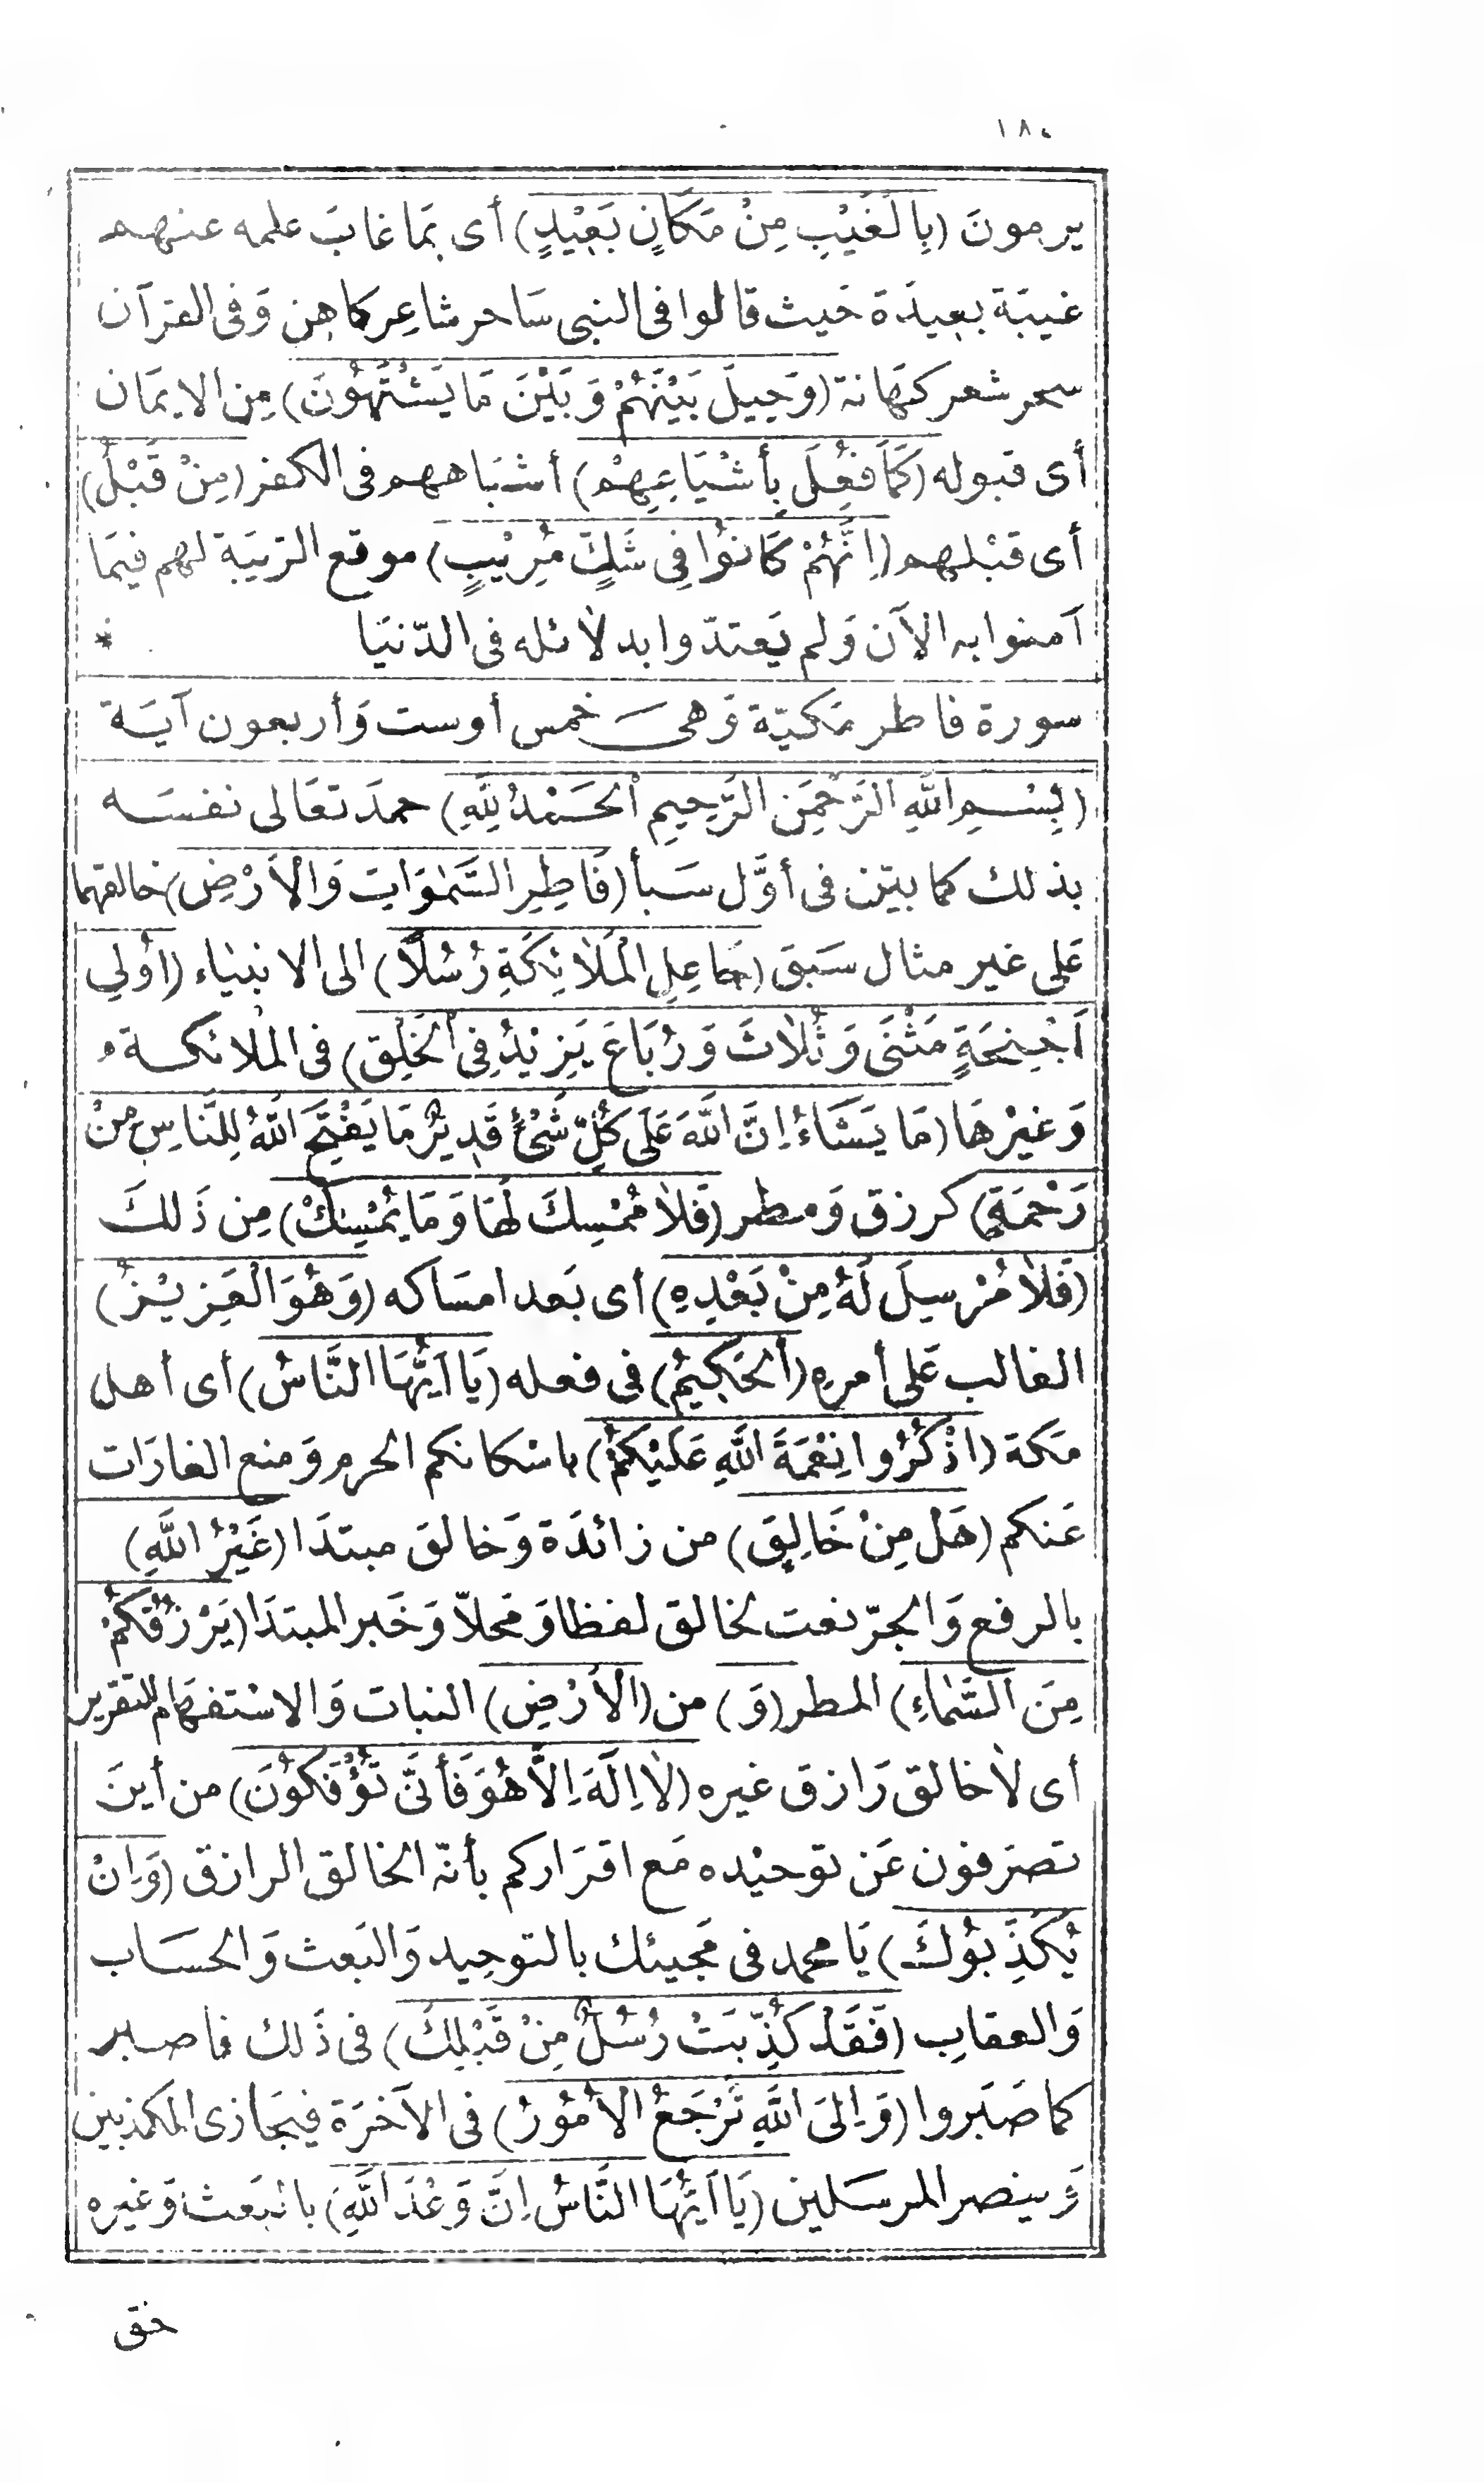 ١٨٤
يرمونَ (بِالْغَيْبِ مِنْ مَكَانٍ بَعِيْدٍ) أى بمَا غابَ علمه عنهم
غيبَة بعيدَة حَيث قالوا فى النبى سَاحر شاعِر كاهِن وَفى القرآن
سحر شعر كهَانة (وَحِيلَ بَيْنَهُمْ وَبَيْنَ مَا يَشْتَهُوْنَ) مِن الايمَان
أى قبوله (كَمَا فُعِلَ بِأَشْيَاعِهِمْ) أشبَاههم فى الكفر (مِنْ قَبْلُ)
أى قبْلهم (اِنَّهُمْ كَانُوْا فِى شَكٍّ مُرِيْبٍ) موقع الرّيبَة لهم فيمَا
آمنوا به الآن وَلم يَعتدّوا بدلائله فى الدّنيَا *
سورة فاطر مَكيّة وَهىَ خمس أو ست وَأربعون آيَة
(بِسْمِ اللَّهِ الرَّحْمَنِ الرَّحِيمِ اَلْحَمْدُ لِلَّهِ) حمدَ تعَالى نفسَه
بذلك كما بيّن فى أوَّل سَبأ (فَاطِرِ السَّمٰوَاتِ وَالْاَرْضِ) خالقهما
عَلى غير مثال سَبق (جَاعِلِ الْمَلَائِكَةِ رُسُلًا) الى الانبيَاء (اُولِى
اَجْنِحَةٍ مَثْنَى وَثُلَاثَ وَرُبَاعَ يَزِيْدُ فِى الْخَلْقِ) فى الملائكة
وَغيْرهَا (مَا يَشَاءُ اِنَّ اللَّهَ عَلَى كُلِّ شَىْءٍ قَدِيرٌ مَا يَفْتَحِ اللَّهُ لِلنَّاسِ مِنْ
رَحْمَةٍ) كرزق وَمطر (فَلَا مُمْسِكَ لَهَا وَمَا يُمْسِكْ) مِن ذَلكَ
(فَلَا مُرْسِلَ لَهُ مِنْ بَعْدِهِ) أى بَعد امسَاكه (وَهُوَ الْعَزِيْزُ)
الغالب عَلى أمرهِ (اَلْحَكِيْمُ) فى فعله (يَا اَيُّهَا النَّاسُ) أى أهل
مَكة (اذْكُرُوا نِعْمَةَ اللَّهِ عَلَيْكُمْ) باسْكانكم الحرم وَمنع الغارَات
عَنكم (هَلْ مِنْ خَالِقٍ) من زائدَة وَخالق مبتدَا (غَيْرُ اللَّهِ)
بالرفع وَالجرّ نعت لخالق لفظا وَمَحلاّ وَخَبر المبتدَا (يَرْزُقُكُمْ
مِنَ السَّمَاءِ) المطر (وَ) من (الْاَرْضِ) النبات وَالاسْتفهَام للتقرير
أى لا خالق رَازق غيره (لَا اِلَهَ اِلَّا هُوَ فَأَنَّى تُؤْفَكُوْنَ) من أينَ
تصرَفون عَن توحيْده مَع اقرَاركم بأنّه الخالق الرازق (وَاِنْ
يُكَذِّبُوْكَ) يَا محمد فى مَجيئك بالتوحِيد وَالبَعث وَالحسَاب
وَالعقابِ (فَقَدْ كُذِّبَتْ رُسُلٌ مِنْ قَبْلِكَ) فى ذَلك فاصبر
كما صَبَروا (وَاِلَى اللَّهِ تُرْجَعُ الْاُمُوْرُ) فى الآخرَة فيجَازى المكذبين
وَينصر المرسَلين (يَا اَيُّهَا النَّاسُ اِنَّ وَعْدَ اللَّهِ) بالبَعث وَغيره
حق